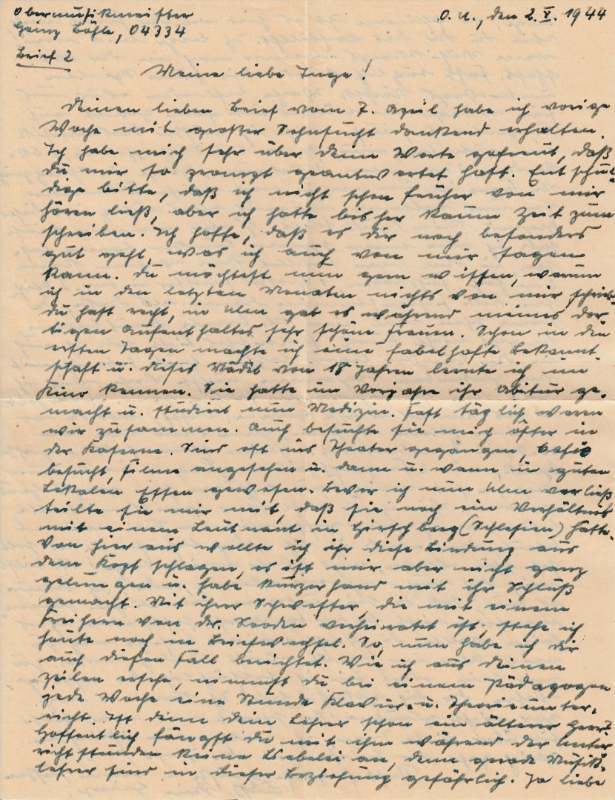 Obermusikmeister
Heinz Böhle, 04334
O. U., den 2. V. 1944
Brief 2
Meine liebe Inge!
Deinen lieben Brief vom 7. April habe ich vorige
Woche mit großer Sehnsucht dankend erhalten.
Ich habe mich sehr über deine Worte gefreut, daß
du mir so geantwortet hast. Entschul-
dige bitte, daß ich nicht schon früher von mir
hören ließ, aber ich hatte bisher kaum Zeit zum
schreiben. Ich hoffe, daß es dir noch besonders
gut geht, was ich auch von mir sagen
kann. Du möchtest nun gern wissen, warum
ich in den letzten Monaten nichts von mir schrieb.
du hast recht, in Ulm gab es während meines dor-
tigen Aufenthaltes sehr schöne Frauen. Schon in den
ersten Tagen machte ich eine fabelhafte Bekannt-
schaft u. dieses Mädel von 18 Jahren lernte ich im
Kino kennen. Sie hatte im Vorjahre ihr Abitur ge-
macht u. studiert nun Medizin. Fast täglich waren
wir zusammen. Auch besuchte sie mich öfter in
der Kaserne. Sind oft ins Theater gegangen, Cafés
besucht, Filme angesehen u. dann u. wann in guten
Lokalen Essen gewesen. Bevor ich nun Ulm verließ
teilte sie mir mit, daß sie noch ein Verhältnis
mit einem Leutnant in Hirschberg (Schlesien) hatte.
Von hier aus wollte ich ihr diese Bindung aus
dem Kopf schlagen, es ist mir aber nicht ganz
gelungen u. habe kurzerhand mit ihr Schluß
gemacht. Mit ihrer Schwester, die mit einem
Freiherrn von der verheiratet ist, stehe ich
heute noch in Briefwechsel. So, nun habe ich dir
auch diesen Fall berichtet. Wie ich aus deinen
Zeilen ersehe, nimmst du bei einem Pädagogen
jede Woche eine Stunde Klavier u. Theorieunter-
richt. Ist denn dein Lehrer schon ein älterer Herr?
Hoffentlich fängst du mit ihm während der Unter-
richtstunden keine Liebelei an, denn gerade Musik-
lehrer sind in dieser Beziehung gefährlich. Ja liebe